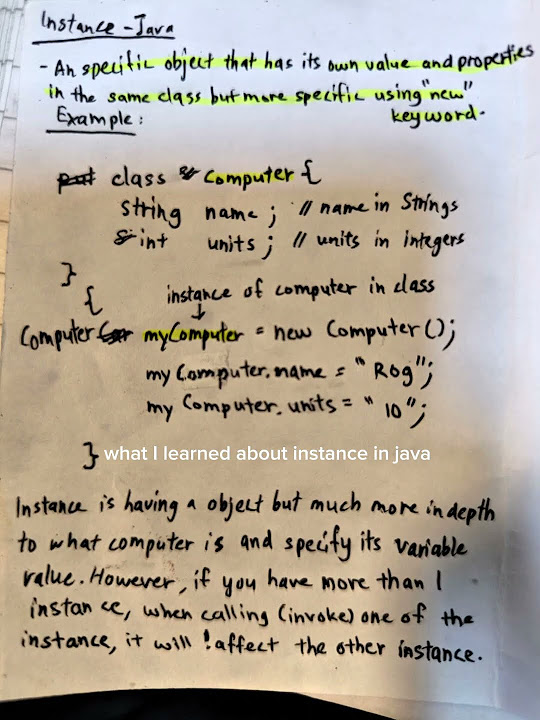 Instance - Java
- An specific object that has its own value and properties
in the same class but more specific using "new"
keyword.
Example:
class Computer {
String name ; // name in Strings
int units ; // units in integers
}
{
instance of computer in class
Computer myComputer = new Computer();
my Computer.name = "Rog";
my Computer.units = "10";
}
what I learned about instance in java
Instance is having a object but much more in depth
to what computer is and specify its variable
value. However, if you have more than 1
instance, when calling (invoke) one of the
instance, it will !affect the other instance.